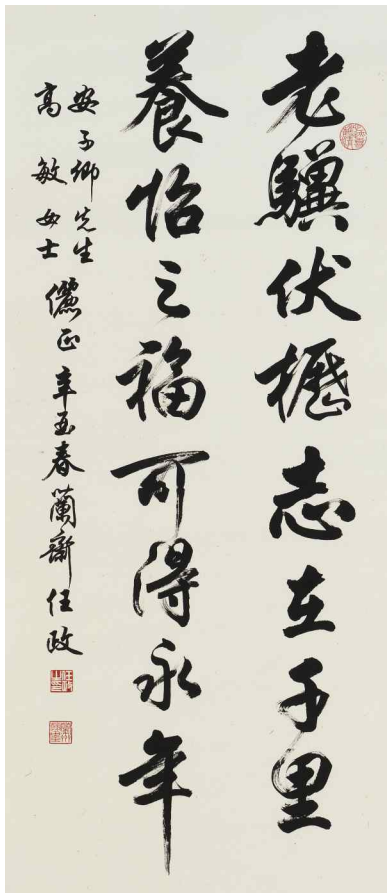 老驥伏櫪志在千里
養怡之福可得永年
安子卿先生
高敏女士
儷正辛酉春蘭齋任政